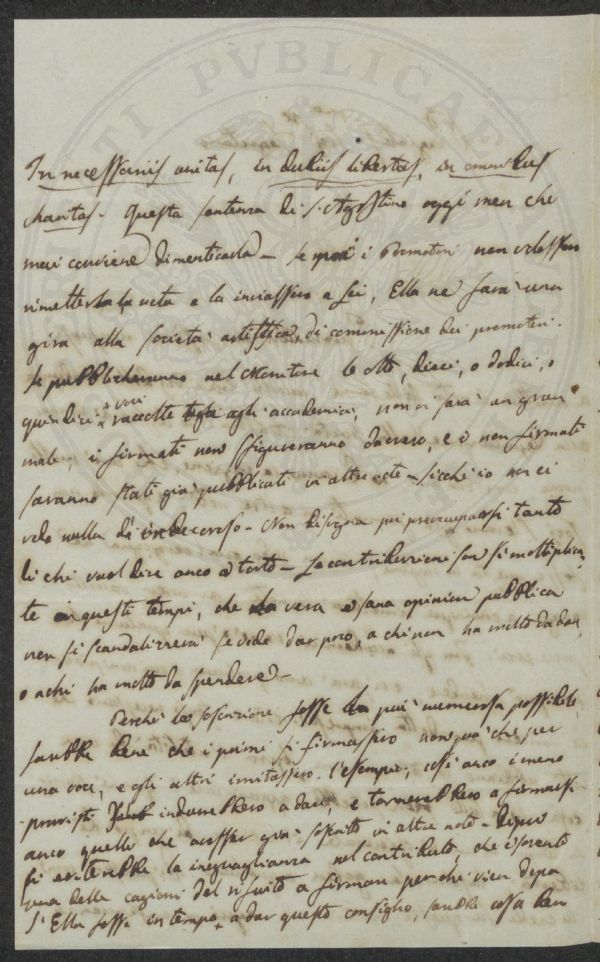 In necessariis unitas, in dubiis libertas, in omnibus
charitas. Questa sentenza di S. Agostino oggi men che
mai conviene dimenticarla – Se poi i Promotori non volessero
rimetter la nota e la inviassero a lei, Ella ne farà una
gira alla società artistica, di commissione dei promotori.
Se pubblicheranno nel Monitore le otto, dieci, o dodici, o
quindici voci raccolte agli accademici, non ci sarà un gran
male; i firmati non sfigureranno davvero, e i non firmati
saranno stati già pubblicati in altre note – sicchè io non ci
vedo nulla di indecoroso – Non bisogna poi preoccuparsi tanto
di chi vuol dire anco a torto – Le contribuzioni son sì moltiplica-
te in questi tempi, che la vera e sana opinion pubblica
non si scandalizzerà se vede dar poco, a chi non ha molto da dare,
o a chi ha molto da spendere –
Perchè la soscrizione fosse la più numerosa possibile,
sarebbe bene che i primi si firmassero non più che per
una voce, e gli altri imitassero l'esempio; così anco i meno
provvisti s'indurrebbero a dare, e tornerebbero a firmarsi
anco quelli che avesser già soscritto in altre note. Dipiù
si eviterebbe la ineguaglianza nel contributo, che è sovente
una delle cagioni del rifiuto a firmare per chi vien dopo
S'Ella fosse in tempo a dar questo consiglio, sarebbe cosa ben